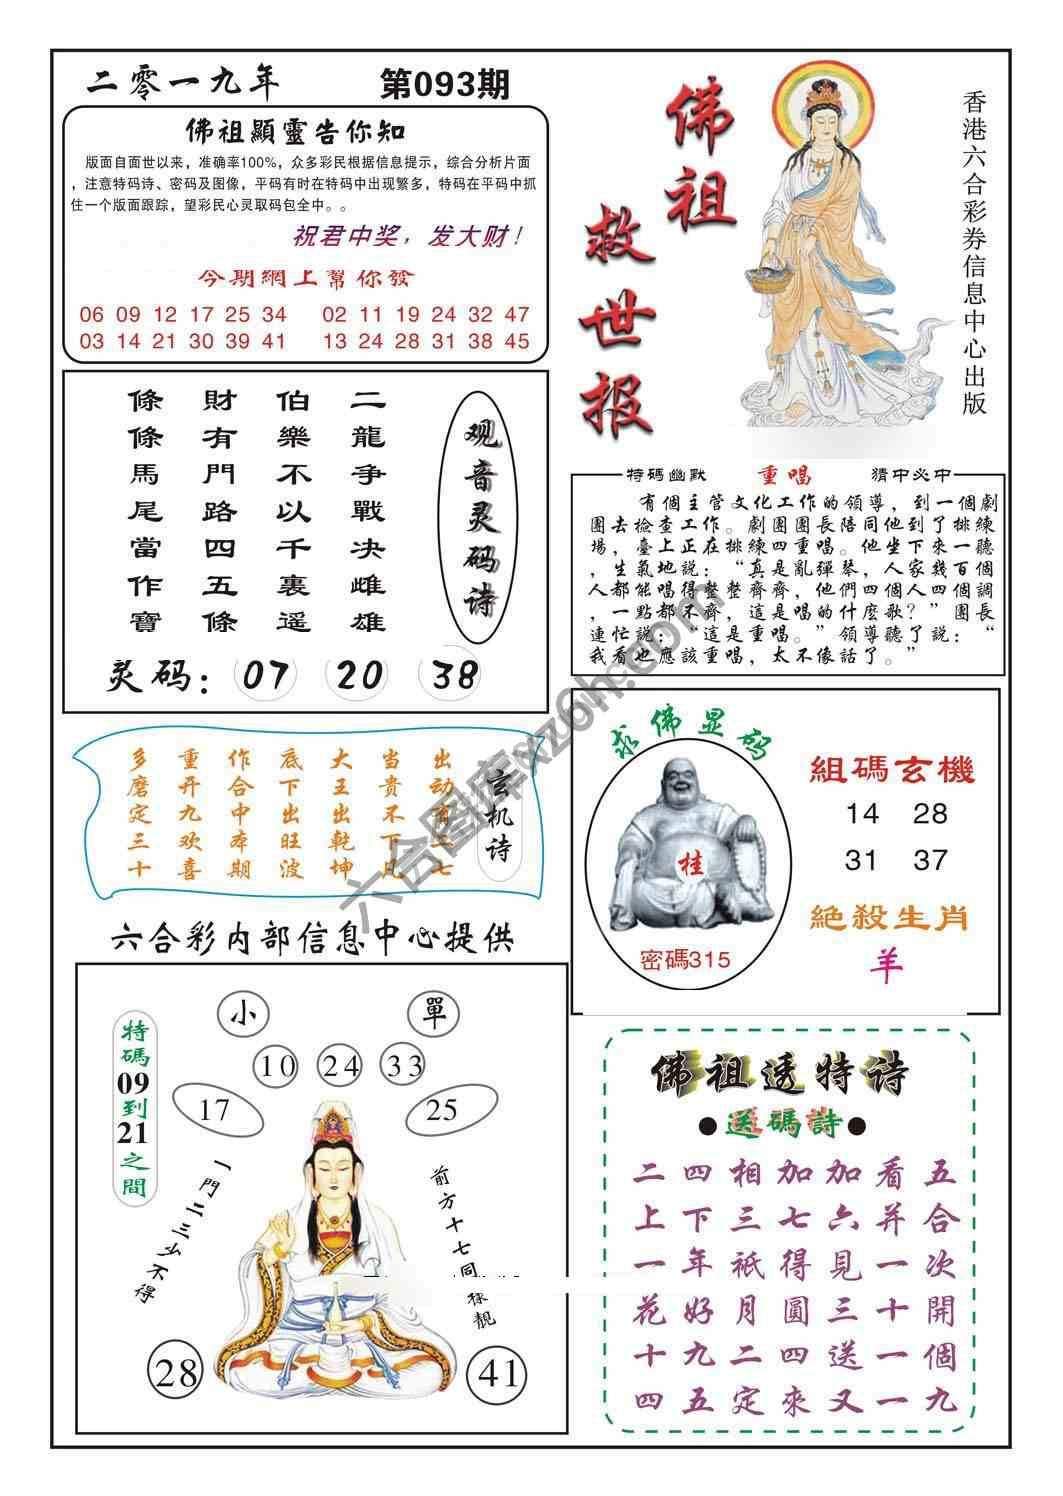 二零一九年
第093期
佛祖顯靈告你知
版面自面世以来，准确率100%，众多彩民根据信息提示，综合分析片面
，注意特码诗、密码及图像，平码有时在特码中出现繁多，特码在平码中抓
住一个版面跟踪，望彩民心灵取码包全中。。
祝君中奖，发大财！
今期網上幫你發
06 09 12 17 25 34
02 11 19 24 32 47
03 14 21 30 39 41
13 24 28 31 38 45
佛祖
救世报
香港六合彩券信息中心出版
观音灵码诗
二龍争戰决雌雄
伯樂不以千裏遥
財有門路四五條
條條馬尾當作寶
灵码：07 20 38
特碼幽默 重唱 猜中必中
有個主管文化工作的領導，到一個劇
團去檢查工作。劇團團長陪同他到了排練
場，臺上正在排練四重唱。他坐下來一聽
，生氣地説：“真是亂彈琴，人家幾百個
人都能唱得整整齊齊，他們四個人四個調
，一點都不齊，這是唱的什麼歌？”團長
連忙説：“這是重唱。”領導聽了説：“
我看也應該重唱，太不像話了。”
玄机诗
出动有二七
当贵不下凡
大王出乾坤
底下出旺波
作合中本期
重开九欢喜
多磨定三十
求佛显码
桂
密碼315
組碼玄機
14 28
31 37
絶殺生肖
羊
六合彩内部信息中心提供
特碼09到21之間
小
單
10 24 33
17
25
一門二三少不得
前方十七同樣靓
28
41
佛祖透特诗
●送碼詩●
五合次開個九
看并一十一一
加六見三送又
加七得圓四來
相三祇月二定
四下年好九五
二上一花十四
六合图库xz6h.com